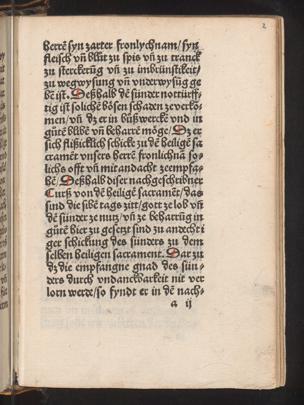 2
herrē syn zarter fronlychnam/syn
fleisch vn̄ blůt zu spis vn̄ zu tranck
zu sterckerūg vn̄ zu imbrünstikeit/
zu wegwysung vn̄ vnderwysūg ge
bē ist. Deßhalb dē sünder notturff/
tig ist solichē bösen schaden ze verkō-
men/ vn̄ dz er in bůßwercke vn̄ in
gůtē blibē vn̄ beharrē möge/ Dz er
sich flißiklich schickr zu dē heiligē sa
cramēt vnsers herrē fronlichnā so-
lichs offt vn̄ mit andacht ze empfa-
hē/ Deßhalb diser nachgeschribner
Curß von dē heiligē sacramēt/ das
sind die sibē tags zitt/ gott ze lob vn̄
dē sünder ze nutz/ vn̄ ze beharrūg in
gůtē hier zu gesetzt sind zu andecht i
ger schickung des sünders zu dem
selben heiligen sacrament. Dar zu
dz die empfangne gnad des sün-
ders durch vndanckbarkeit nit ver
lorn werd/ so fyndt er in dē nach-
a ij